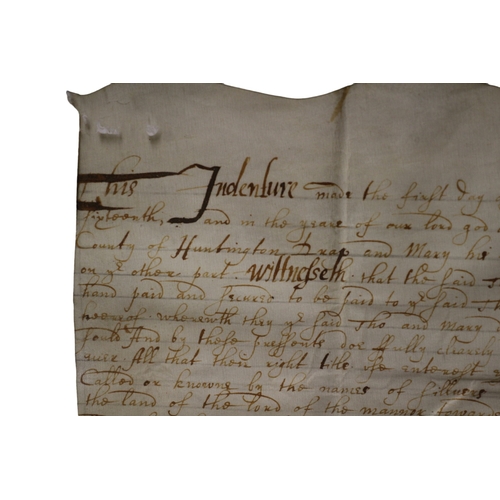 This Indenture made the first day
sixteenth, and in the yeare of our lord god
County of Huntington Drap and Mary his
on ye other part Wittnesseth that the said
hand paid and secured to be paid to ye said
heereof wherewth they ye said Tho and Mary
sould And by these pressents doe fully clearely
euer All that their right title use interest
Called or knowne by the names of
the land of the lord of the mannor towards